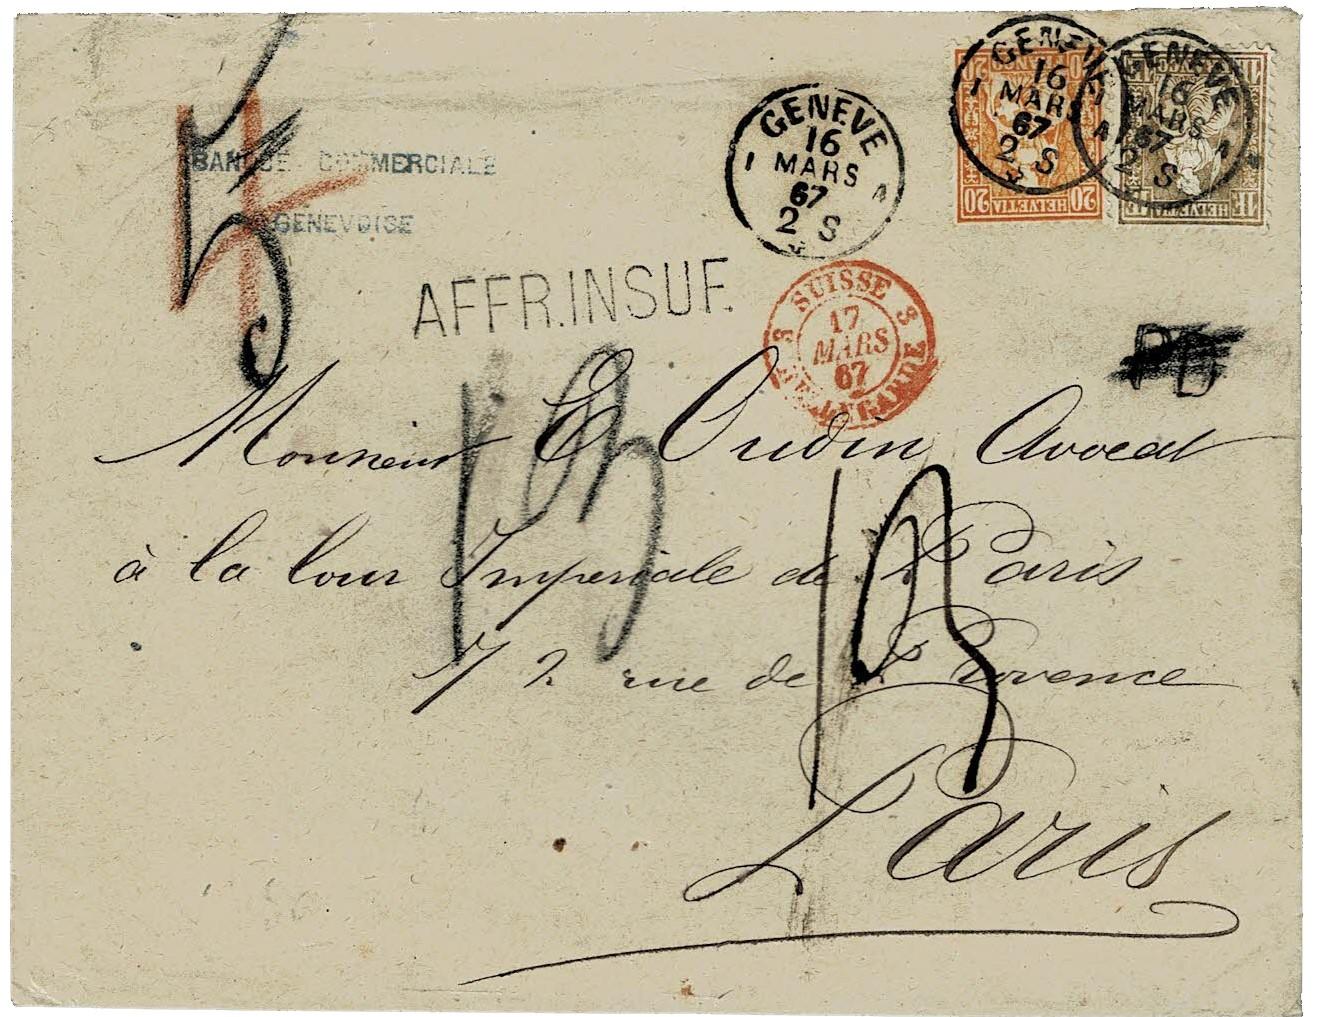 GENEVE
16
I MARS A
67
2 S
GENEVE
16
I MARS A
67
2 S
GENEVE
16
I MARS A
67
2 S
20 20
HELVETIA
20 20
1F HELVETIA 1F
BANQUE COMMERCIALE
GENEVOISE
AFFR.INSUF.
3 SUISSE 3
17
MARS
67
BELLEGARDE
PD
5
4
13
13
Monsieur E Oudin Avocat
à la Cour Imperiale de Paris
72 rue de Provence
Paris